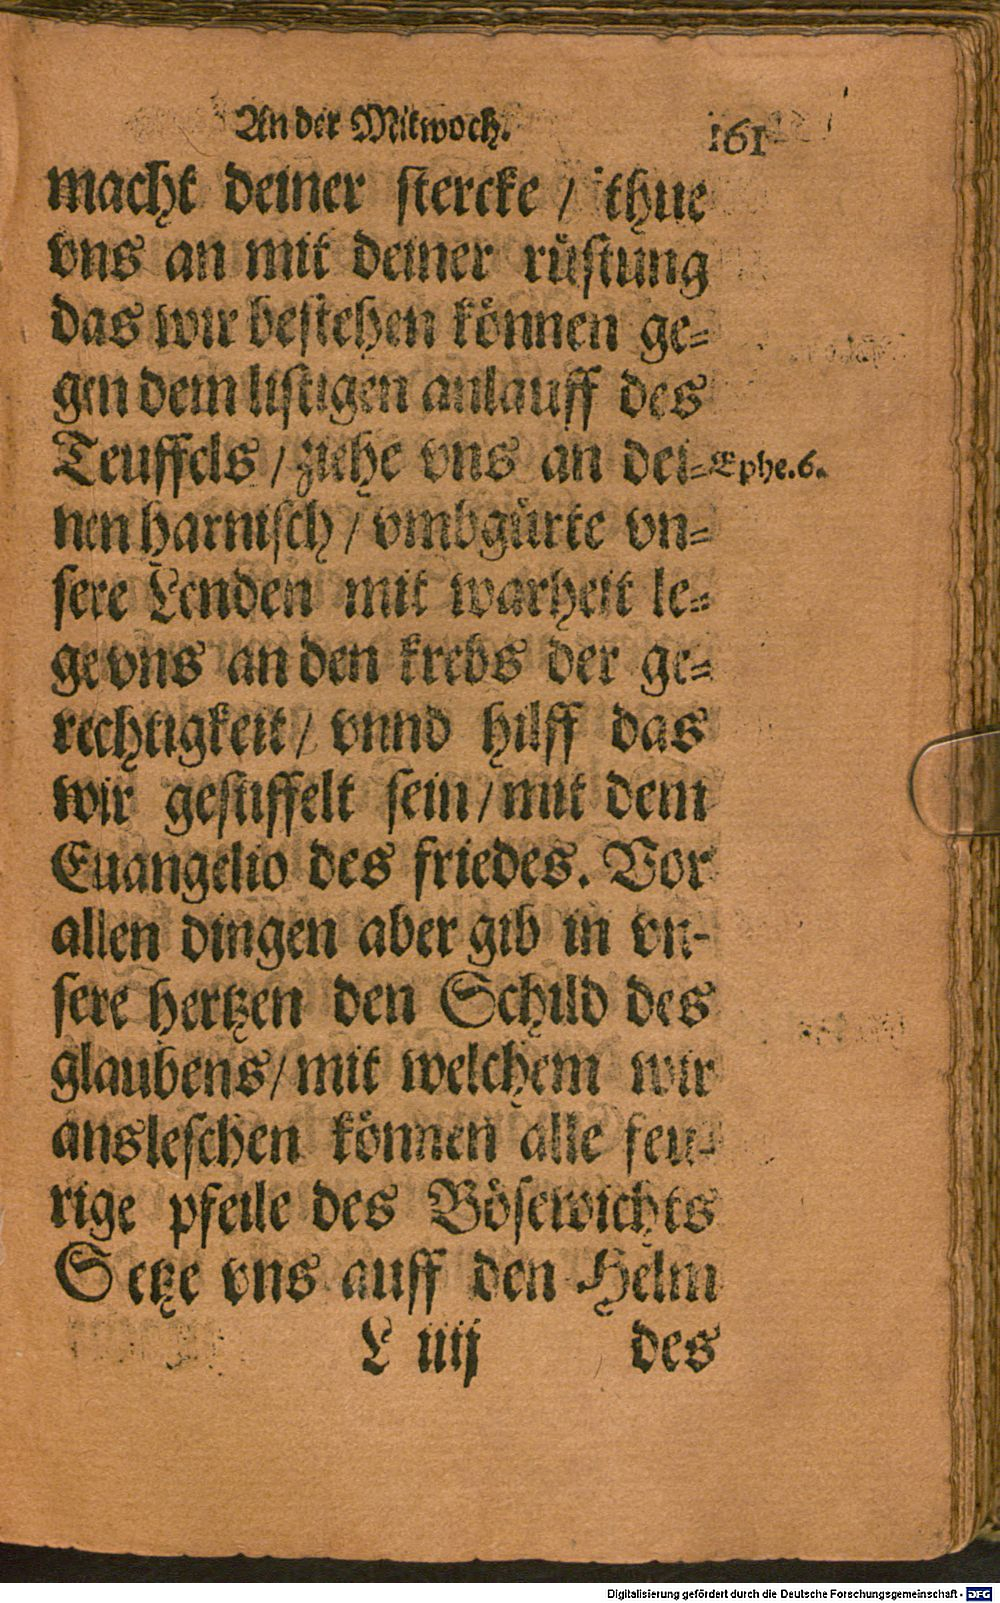 An der Mitwoch. 161
macht deiner stercke / thue
vns an mit deiner rüstung
das wir bestehen können ge=
gen dem listigen anlauff des
Teuffels / ziehe vns an dei=
Ephe.6.
nen harnisch / vmbgürte vn=
sere Lenden mit warheit le=
ge vns an den krebs der ge=
rechtigkeit / vnnd hilff das
wir gestiffelt sein / mit dem
Euangelio des friedes. Vor
allen dingen aber gib in vn-
sere hertzen den Schild des
glaubens / mit welchem wir
ansleschen können alle feu-
rige pfeile des Bösewichts
Setze vns auff den Helm
L iiij des
Digitalisierung gefördert durch die Deutsche Forschungsgemeinschaft - DFG